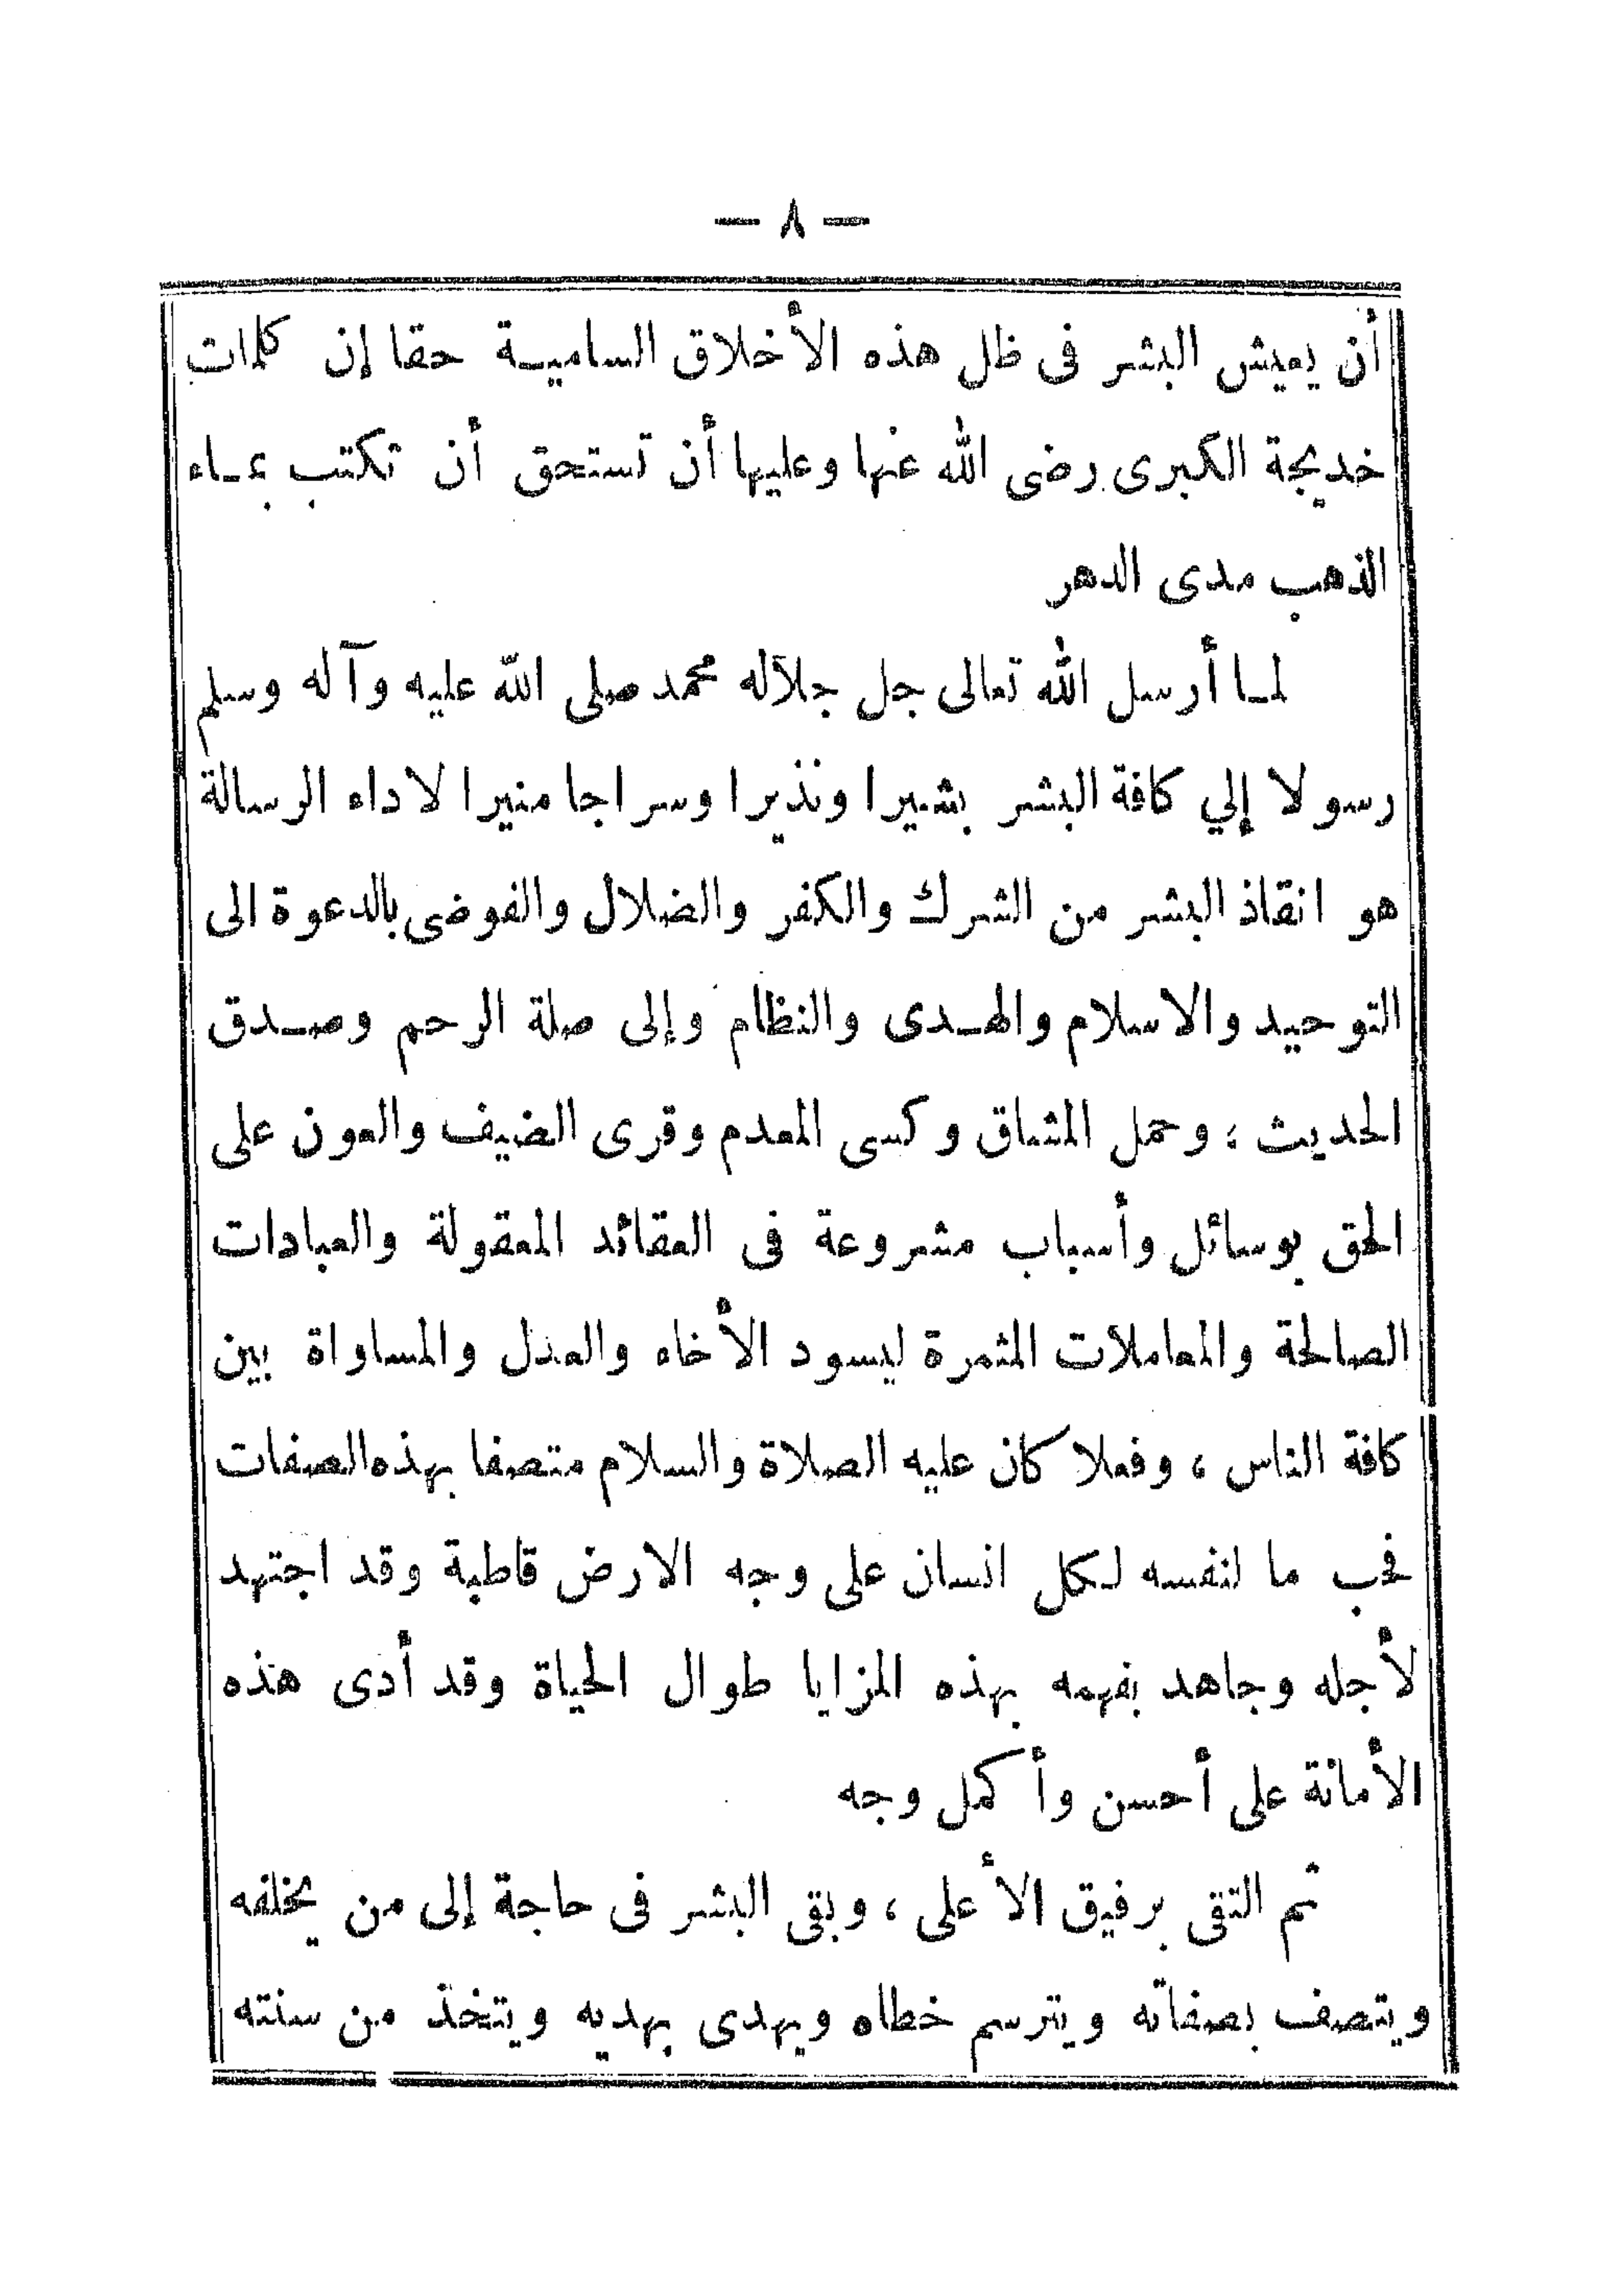 — ٨ —
أن يعيش البشر فى ظل هذه الأخلاق الساميـة حقا إن كلمات
خديجة الكبرى رضى الله عنها وعليها أن تستحق أن تكتب بمـاء
الذهب مدى الدهر
لمـا أرسل الله تعالى جل جلاله محمد صلى الله عليه وآله وسلم
رسولا إلي كافة البشر بشيرا ونذيرا وسراجا منيرا لاداء الرسالة
هو انقاذ البشر من الشرك والكفر والضلال والفوضى بالدعوة الى
التوحيد والاسلام والهـدى والنظام وإلى صلة الرحم وصـدق
الحديث ؛ وحمل المشاق وكسى المعدم وقرى الضيف والعون على
الحق بوسائل وأسباب مشروعة فى العقائد المعقولة والعبادات
الصالحة والمعاملات المثمرة ليسود الأخاه والعدل والمساواة بين
كافة الناس ، وفعلا كان عليه الصلاة والسلام متصفا بهذه الصفات
فحب ما لنفسه لـكل انسان على وجه الارض قاطبة وقد اجتهد
لأجله وجاهد بفهمه بهذه المزايا طوال الحياة وقد أدى هذه
الأمانة على أحسن وأكمل وجه
ثم التقى برفيق الأعلى ، وبقى البشر فى حاجة إلى من يخلفه
ويتصف بصفاته ويترسم خطاه ويهدى بهديه ويتخذ من سنته